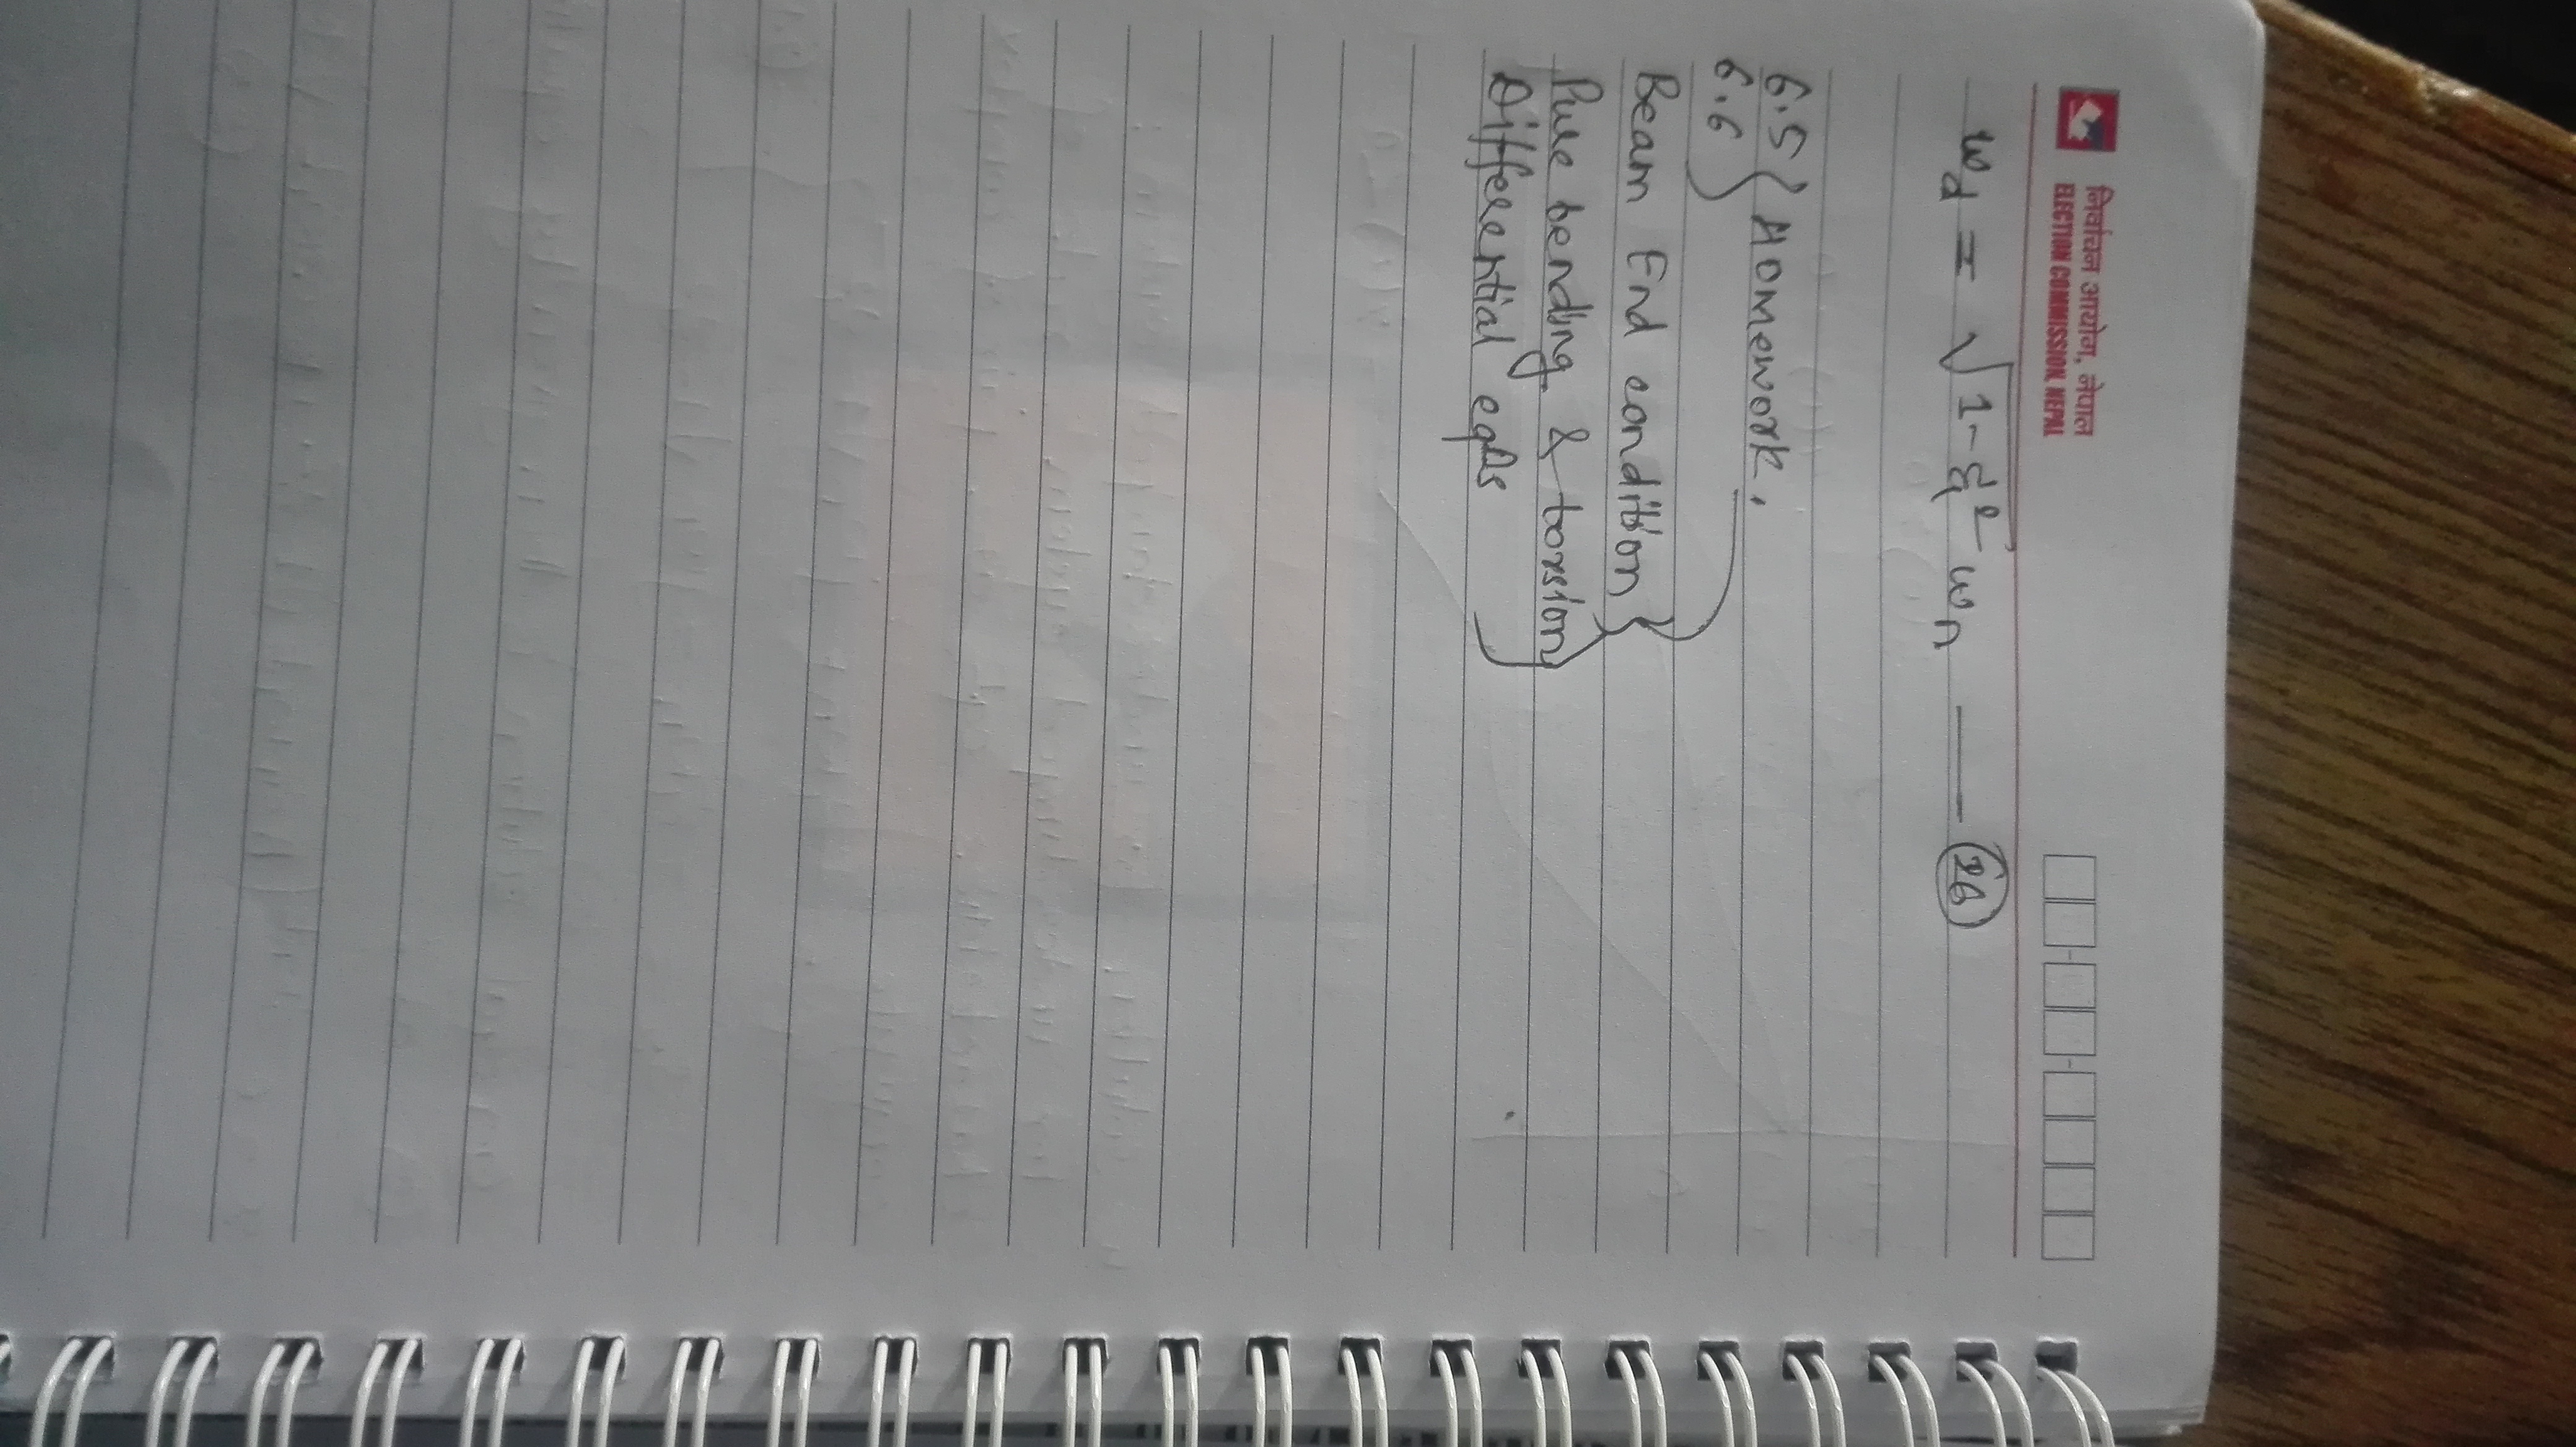 निर्वाचन आयोग, नेपाल
ELECTION COMMISSION, NEPAL
ω_d = √(1-ξ²) ω_n —— (26)
6.5 } Homework,
6.6
Beam End condition
Pure bending & torsion
Differential eqns